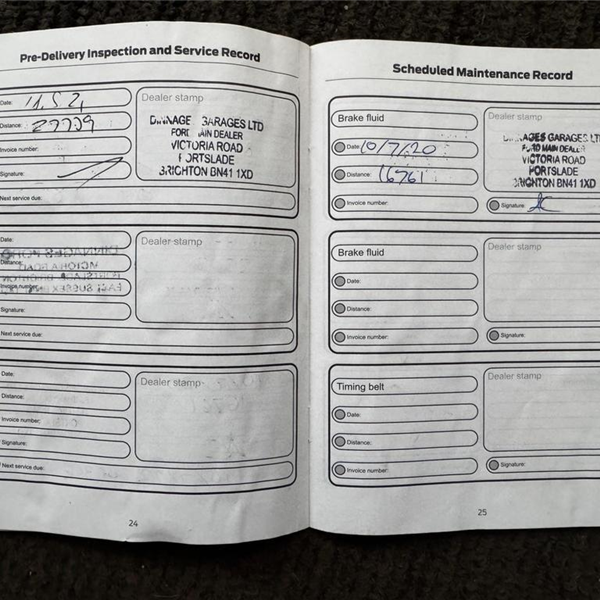 Pre-Delivery Inspection and Service Record
Date: 11.5.21
Distance: 27779
Invoice number:
Signature:
Next service due:
Dealer stamp
DINNAGE GARAGES LTD
FORD MAIN DEALER
VICTORIA ROAD
PORTSLADE
BRIGHTON BN41 1XD
Date:
Distance:
Invoice number:
Signature:
Next service due:
Dealer stamp
Date:
Distance:
Invoice number:
Signature:
Next service due:
Dealer stamp
24
Scheduled Maintenance Record
Brake fluid
Date: 10/7/20
Distance: 16761
Invoice number:
Dealer stamp
GARAGES LTD
FORD MAIN DEALER
VICTORIA ROAD
PORTSLADE
BRIGHTON BN41 1XD
Signature:
Brake fluid
Date:
Distance:
Invoice number:
Dealer stamp
Signature:
Timing belt
Date:
Distance:
Invoice number:
Dealer stamp
Signature:
25